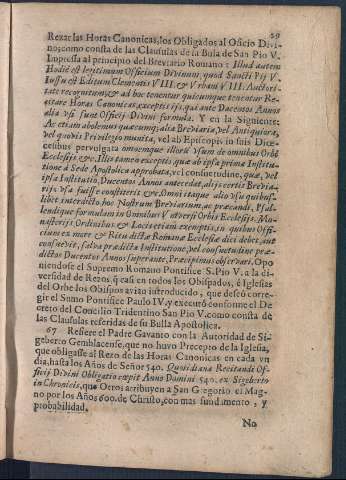 29
Rezar las Horas Canonicas, los Obligados al Oficio Divi-
no; como consta de las Clausulas de la Bula de San Pio V.
Impressa al principio del Breviario Romano: Illud autem
Hodiè est legitimum Officium Divinum, quod Sancti Pij V.
Iussu est Editum Clementis VIII. & Vrbani VIII. Auctori-
tate recognitum, & ad hoc tenentur quicumque tenentur Re-
citare Horas Canonicas, exceptis ijs, qui ante Ducentos Annos
alia vsi sunt Officij Divini formula. Y en la Siguiente:
Ac etiam abolemus quæcumq; alia Breviaria, vel Antiquiora,
vel quovis Privilegio munita, vel ab Episcopis in suis Dice-
cesibus pervulgata omnemque illorũ vsum de omnibus Orbis
Ecclesijs, &c. Illis tamen exceptis, quæ ab ipsa prima Institu-
tione à Sede Apostolica approbata, vel consuetudine, quæ, vel
ipsa Institutio, Ducentos Annos antecedat, alijs certis Brevia-
rijs vsa fuisse constiterit, &c. Omni itaque alio vsu quibus-
libet interdicto hoc Nostrum Breviarium, ac præcandi, Psal-
lendique formulam in Omnibus Vniversi Orbis Ecclesijs, Mo-
nasterijs Ordinibus, & Locis etiam exemptis, in quibus Offi-
cium ex more, & Ritu dictæ Romanæ Ecclesiæ dici debet, aut
consuevit, salva prædicta Institutione, vel consuetudine præ-
dictos Ducentos Annos superante, Præcipimus observari. Opo
niendose el Supremo Romano Pontifice S. Pio V. a la di-
versidad de Rezos, q̃ casi en todos los Obispados, è Iglesias
del Orbe los Obispos avian introducido, que deseò corre-
gir el Sumo Pontifice Paulo IV. y executò conforme el De
creto del Concilio Tridentino San Pio V. como consta de
las Clausulas referidas de su Bulla Apostolica.
67 Refiere el Padre Gavanto con la Autoridad de Si-
geberto Gemblacense, que no huvo Precepto de la Iglesia,
que obligasse al Rezo de las Horas Canonicas en cada vn
dia, hasta los Años de Señor 540. Quotidiana Recitandi Of-
ficij Divini Obligatio cœpit Anno Domini 540. ex Sigeberto
in Chronicis, que Otros atribuyen a San Gregorio el Mag-
no por los Años 600. de Christo, con mas fundamento, y
probabilidad.
No